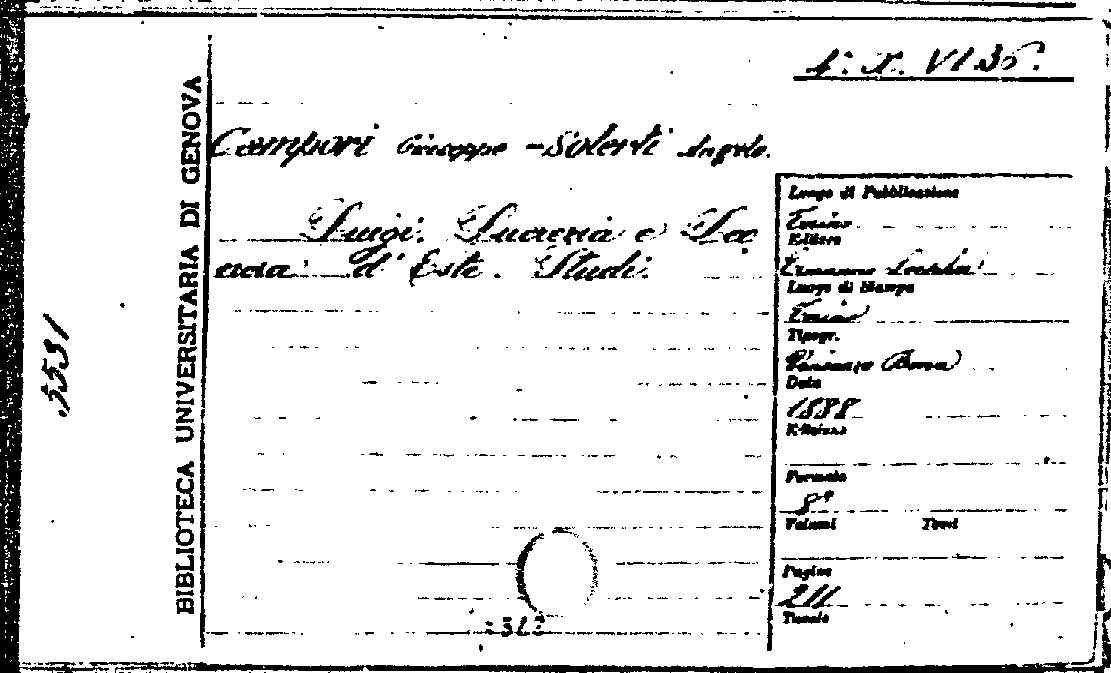 BIBLIOTECA UNIVERSITARIA DI GENOVA
5531
Campori Giuseppe - Solerti Angelo.
Luigi. Lucrezia e Leo
nora d'Este. Studi.
Luogo di Pubblicazione
Torino
Editore
Ermanno Loescher
Luogo di Stampa
Torino
Tipogr.
Vincenzo Bona
Data
1888
Edizione
Formato
8°
Volumi Tomi
Pagine
211